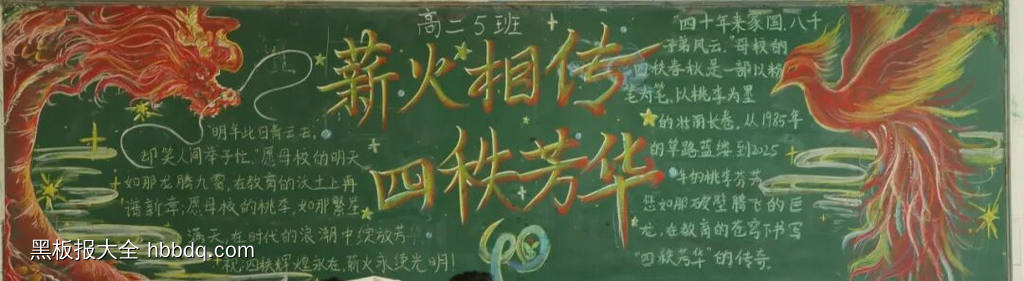 高二5班
薪火相传
四秩芳华
"明年此日青云去,
却笑人间举子忙。"愿母校的明天
如那龙腾九霄,在教育的沃土上再
谱新章;愿母校的桃李,如那繁星
满天,在时代的浪潮中绽放芳
祝:四秩辉煌永在,薪火永续光明!
"四十年来家国,八千
子弟风云。"母校的
四秩春秋是一部以粉
笔为笔,以桃李为墨
的壮丽长卷。从1985年
的筚路蓝缕到2025
年的桃李芬芳
您如那破壁腾飞的巨
龙,在教育的苍穹下书写
"四秩芳华"的传奇。
40
黑板报大全 hbbdq.com